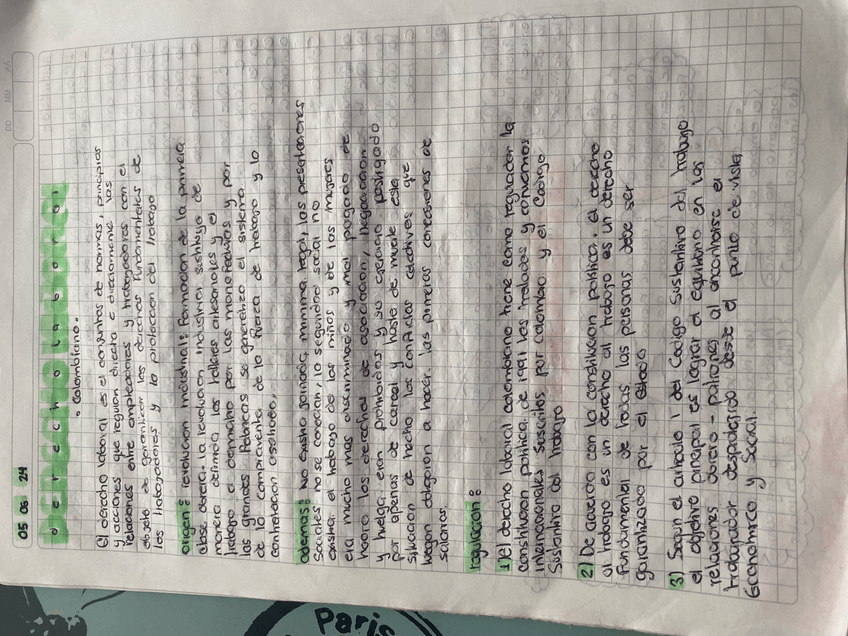 05 06 24
derecho laboral
• Colombiano.
El derecho laboral es el conjuntos de normas, principios
y acciones que regulan directa e directamente las
relaciones entre empleadores y trabajadores con el
objeto de garantizar los derechos fundamentales de
los trabajadores y la protección del trabajo
origen: revolución industrial: Formacion de la primera
clase obrera. la revolución industrial sustituyo de
manera definida los talleres artesanales y el
trabajo a domicilio por las manofacturas y por
las grandes Fabricas se generalizo el sistema
de la compraventa de la fuerza de trabajo y la
contratación asalariada.
ademas: No existia jornada minima legal, las prestaciones
sociales no se conocian, la seguridad social no
existia el trabajo de los niños y de las mujeres
era mucho mas discriminado y mal pagado de
hecho los derechos de asociación, negociación
y huelga eran prohibidos y su ejercicio castigado
por apenas de carcel y hasta de muerte esta
situación de hecho los conflictos colectivos que
luego obligaron a hacer las primeras concesiones de
salarios.
regulacion:
1) el derecho laboral colombiano tiene como regulador la
constitucion politica, de igual los tratados y convenios
internacionales suscritos por colombia y el Codigo
Sustantivo del trabajo
2) De acuerdo con la constitucion politica. el derecho
al trabajo es un derecho al trabajo es un derecho
fundamental de todas las personas debe ser
garantizado por el Estado
3) Segun el articulo 1 del Codigo Sustantivo del trabajo
el objetivo principal es lograr el equilibrio en las
relaciones obrero - patrones al encontrarse el
trabajador desprotegido desde el punto de vista
Economico y Social.
Paris